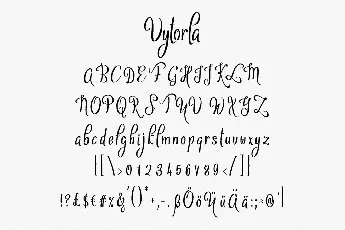 Vytorla
ABCDEFGHIJKLM
NOPQRSTUVWXYZ
abcdefghijklmnopqrstuvwxyz
|[\>0123456789</]|
!?£$€#%&'()*+,-.βÖöÜüÄä:;=@'|